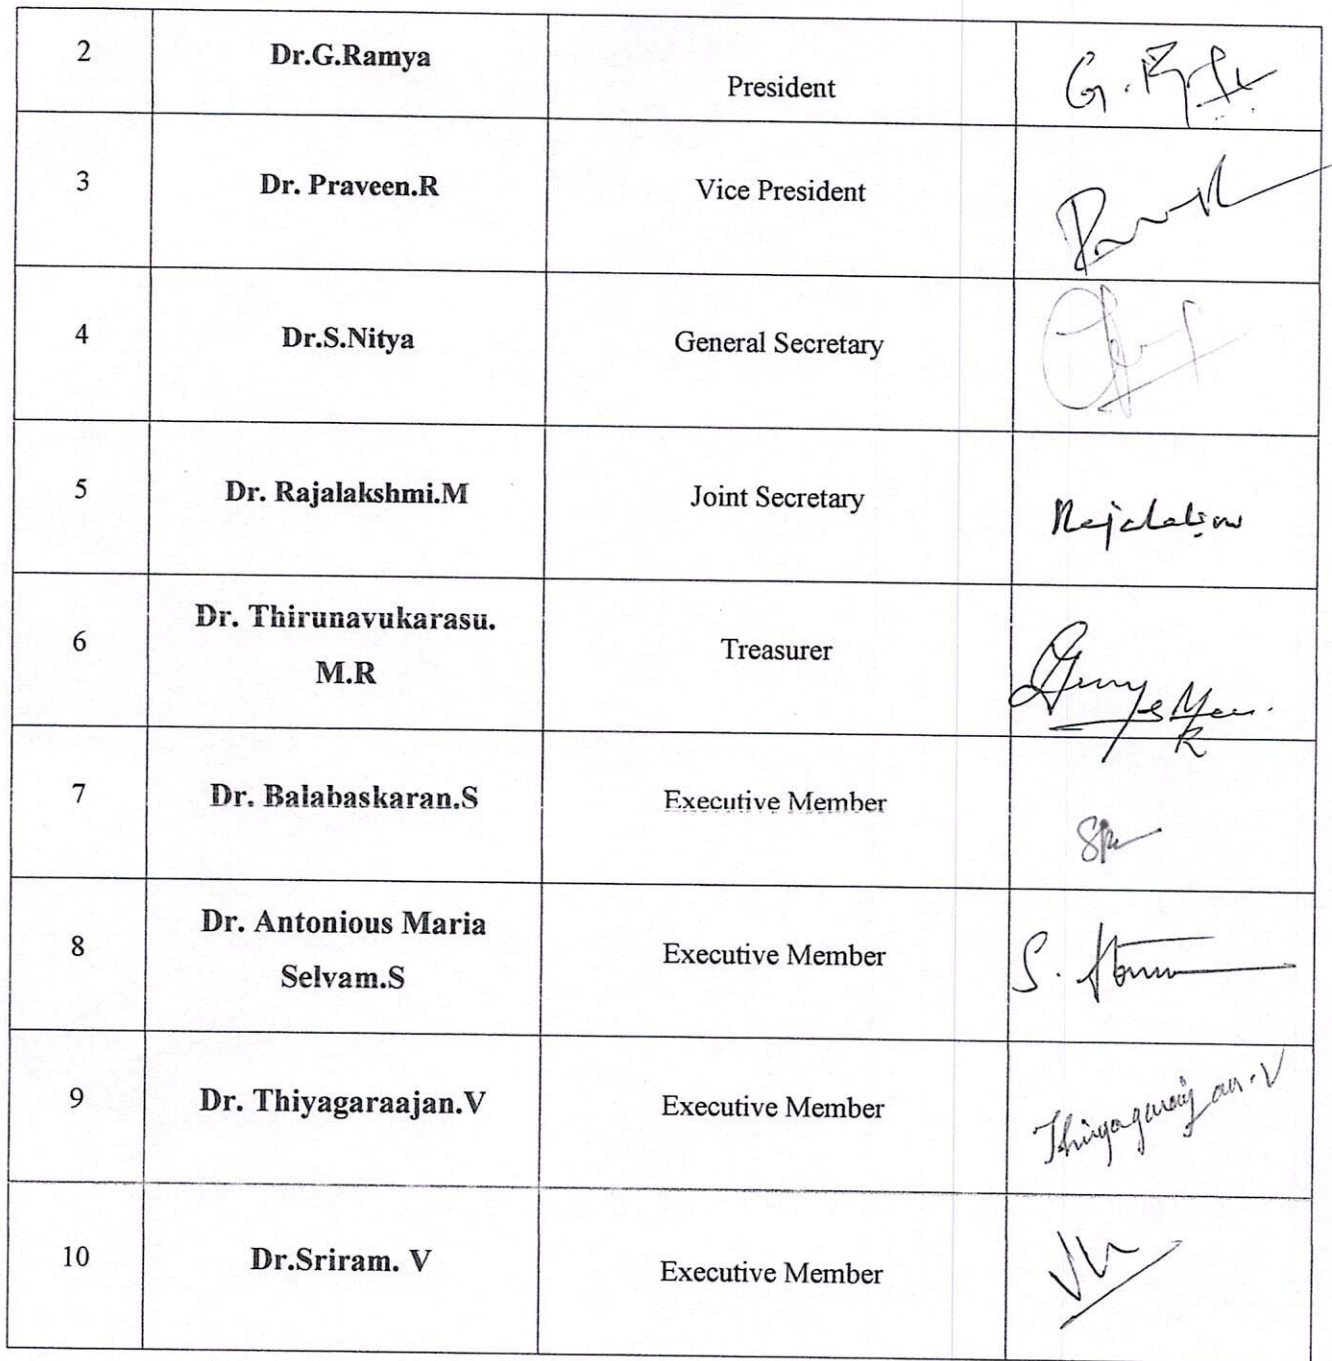 2 Dr.G.Ramya President
3 Dr. Praveen.R Vice President
4 Dr.S.Nitya General Secretary
5 Dr. Rajalakshmi.M Joint Secretary
6 Dr. Thirunavukarasu. Treasurer
M.R
7 Dr. Balabaskaran.S Executive Member
8 Dr. Antonious Maria Executive Member
Selvam.S
9 Dr. Thiyagaraajan.V Executive Member
Thiyagaraajan.V
10 Dr.Sriram. V Executive Member